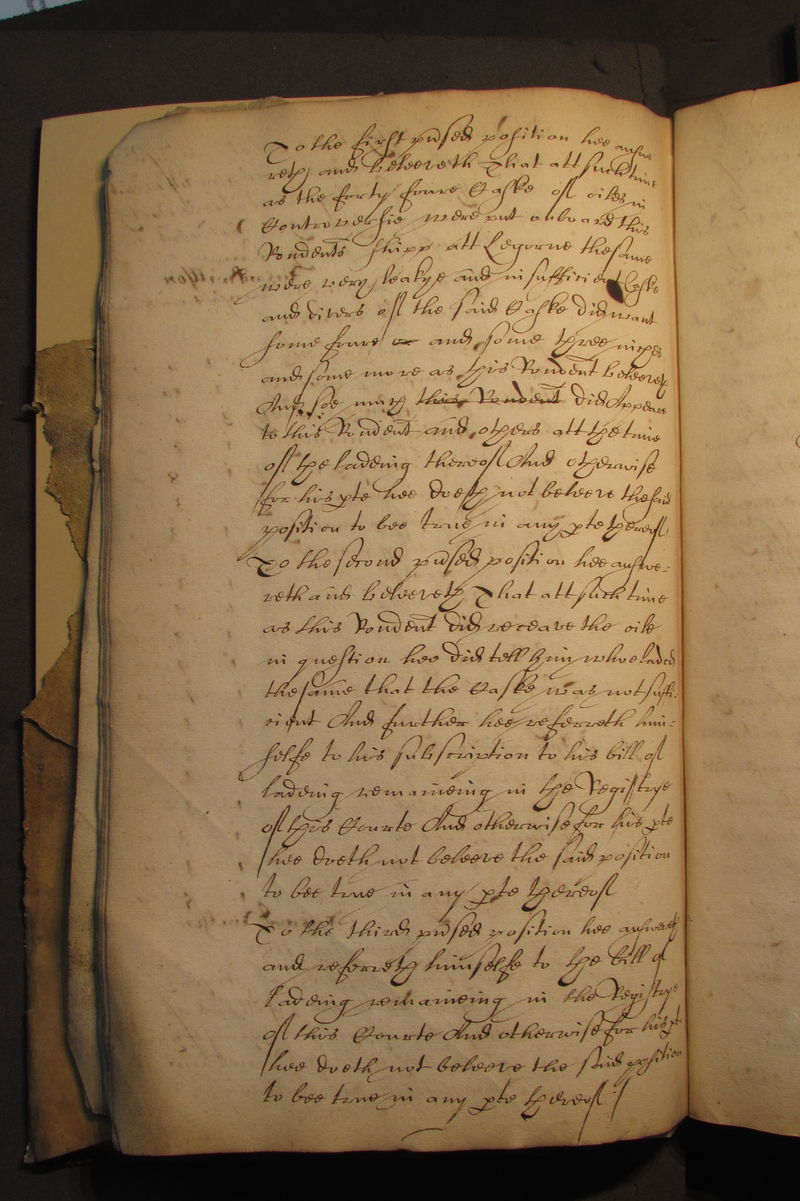 To the first pōsed position hee answe
reth and beleeveth That att such time
as the forty foure Caske of oiles in
Controversie were put onboard this
Rondents shipp att Legorne the same
were very leakye and insufficient Caske
and divers of the said Caske did want
some foure or and some three inches
and some more as this Rondent beleeveth
And soe much this Rondent did Appeare
to this Rondent and others att the time
of the ladeing thereof And otherwise
for his pte hee doeth not beleeve the said
position to bee true in any pte thereof
To the second pōsed position hee answe-
reth and beleeveth That att such time
as this Rondent did receave the oile
in question hee did tell him who laded
the same that the Caske was not suffi-
cient And further hee referreth him-
selfe to his subscription to his bill of
ladeing remaineing in the Registrye
of this Courte And otherwise for his pte
hee doeth not beleeve the said position
to bee true in any pte thereof
To the third pōsed position hee answereth
and referreth himselfe to the bill of
ladeing remaineing in the Registrye
of this Courte And otherwise for his pte
hee doeth not beleeve the said position
to bee true in any pte thereof